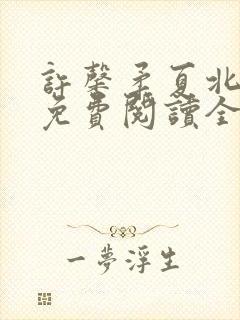 許馨矛夏北
免費閱讀全
一夢浮生